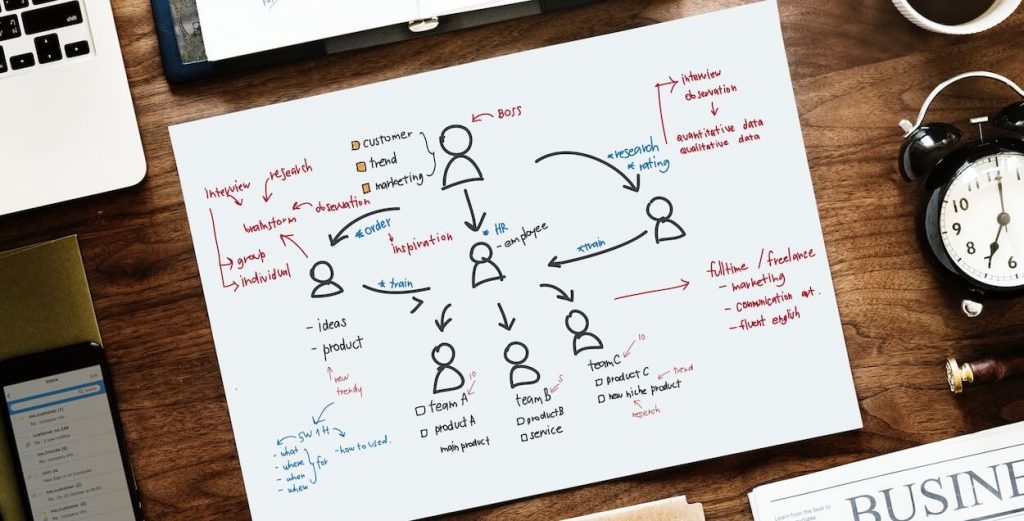 BOSS
customer
trend
marketing
interview
observation
quantitative data
qualitative data
*research
*rating
Interview
research
brainstorm
observation
group
individual
*order
inspiration
* HR
- employee
*train
*train
- ideas
- product
new
trendy
fulltime / freelance
- marketing
- communication art.
- fluent english
team A
10
product A
main product
team B
5
product B
service
team C
10
product C
new niche product
trend
research
5W1H
- what
- where
- when
for
- how to used.
Inbox
Search
10
9
8
7
6
12
BUSINE
Learn from the best